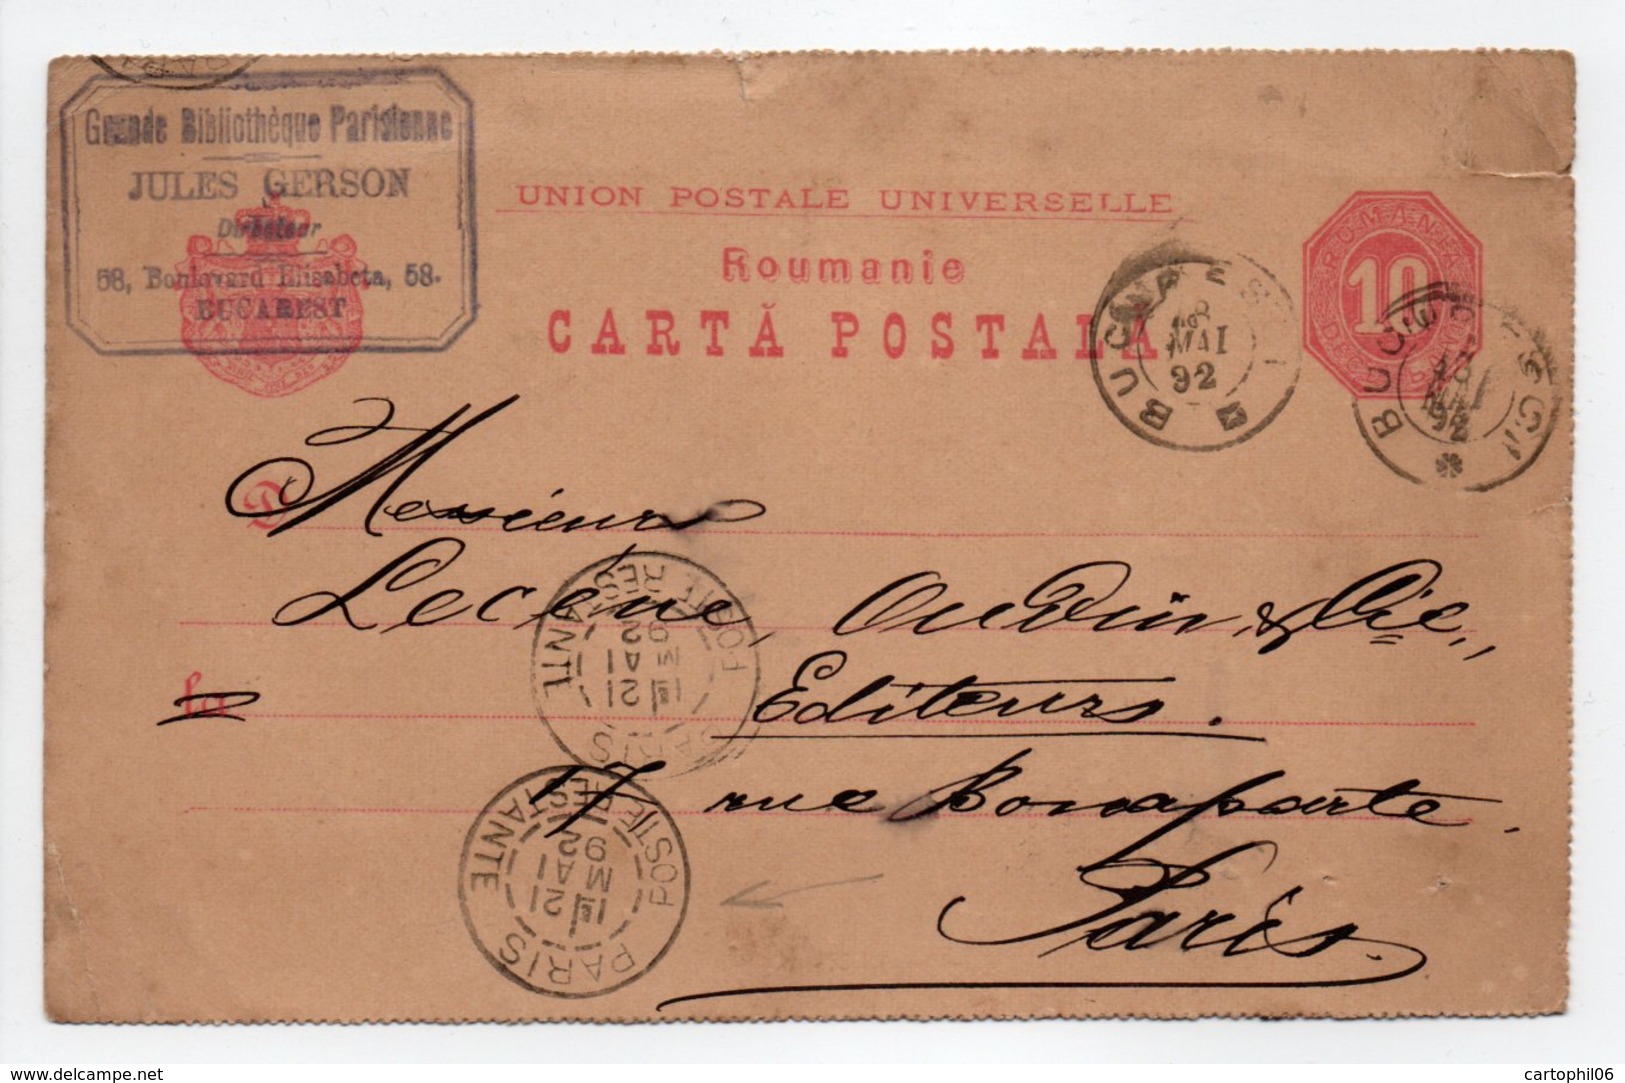 Grande Bibliothèque Parisienne
JULES GERSON
Directeur
58, Boulevard Elisabeta, 58.
BUCAREST
UNION POSTALE UNIVERSELLE
Roumanie
CARTĂ POSTALĂ
ROMANIA
10
BUCURESCI
MAI
92
BUCURESCI
MAI
92
D
Messieurs
Lecène, Oudin & Cie,
la
Editeurs.
17 rue Bonaparte.
Paris.
PARIS
POSTE RESTANTE
21
MAI
92
PARIS
POSTE RESTANTE
21
MAI
92
www.delcampe.net
cartophil06